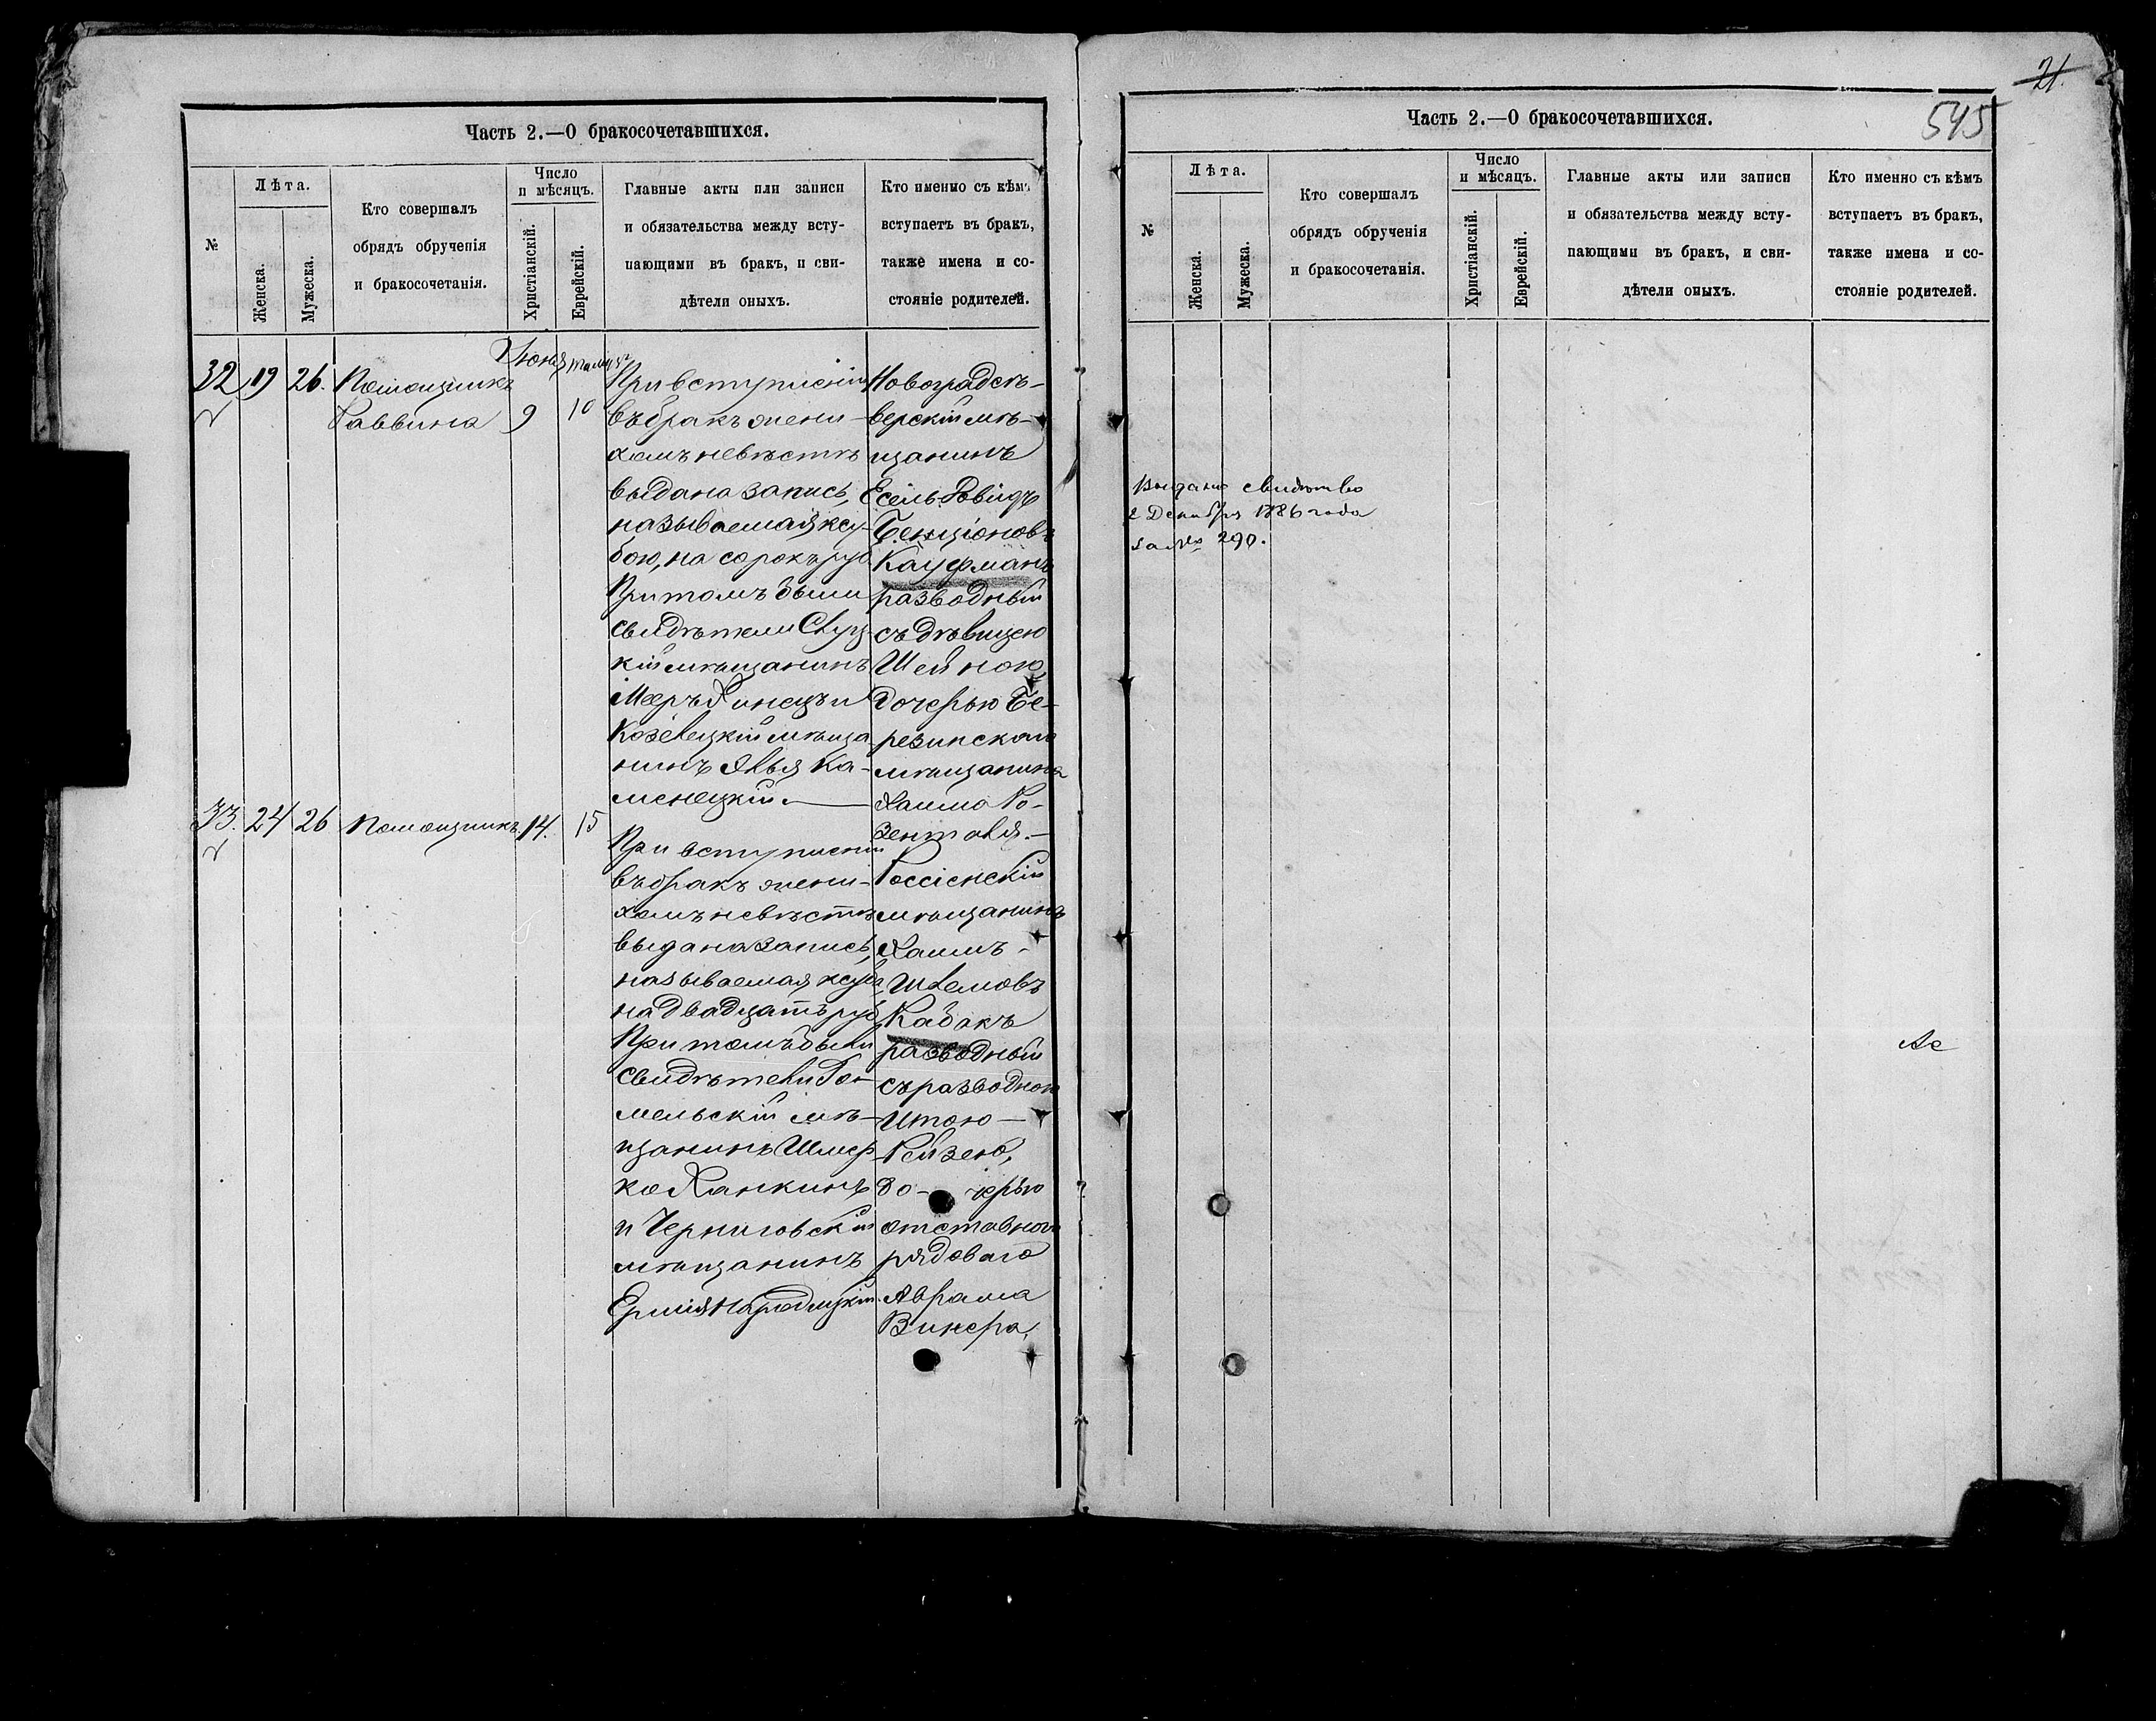 Часть 2.—О бракосочетавшихся.
№
Лѣта.
Женска.
Мужеска.
Кто совершалъ
обрядъ обрученія
и бракосочетанія.
Число
и мѣсяцъ.
Христіанскій.
Еврейскій.
Главные акты или записи
и обязательства между всту-
пающими въ бракъ, и сви-
дѣтели оныхъ.
Кто именно съ кѣмъ
вступаетъ въ бракъ,
также имена и со-
стояніе родителей.
32 19 26. Помощникъ
Раввина
Іюня
9
10
При вступленіи
въ бракъ жени-
хомъ невѣстѣ
выдана запись,
называемая ксу-
бою, на сорокъ руб
При томъ были
свидѣтели Слуц-
кій мѣщанинъ
Мееръ и
Козелецкій мѣща-
нинъ Ка-
менецкій.
Новоградсѣ-
верскій мѣ-
щанинъ
Есель Довидъ
Бенціоновъ
Кауфманъ
разводный
съ дѣвицею
Шейною,
дочерью Бе-
резинскаго
мѣщанина
Хаима Ро-
зенталя.—
33. 24 26 Помощникъ 14. 15
При вступленіи
въ бракъ жени-
хомъ невѣстѣ
выдана запись,
называемая ксуба,
на двадцать руб
При томъ были
свидѣтели Го-
мельскій мѣ-
щанинъ Шмер-
ко Ханкинъ
и Черниговскій
мѣщанинъ
Россіенскій
мѣщанинъ
Хаимъ-
Шлемовъ
Кабакъ
разводный
съ разводною
Итою—
Рейзею,
до- черью
отставного
рядоваго
Абрама
Винера.
21.
545
Часть 2.—О бракосочетавшихся.
№
Лѣта.
Женска.
Мужеска.
Кто совершалъ
обрядъ обрученія
и бракосочетанія.
Число
и мѣсяцъ.
Христіанскій.
Еврейскій.
Главные акты или записи
и обязательства между всту-
пающими въ бракъ, и сви-
дѣтели оныхъ.
Кто именно съ кѣмъ
вступаетъ въ бракъ,
также имена и со-
стояніе родителей.
Выдано
2 Декабря 1886 года
за № 290.